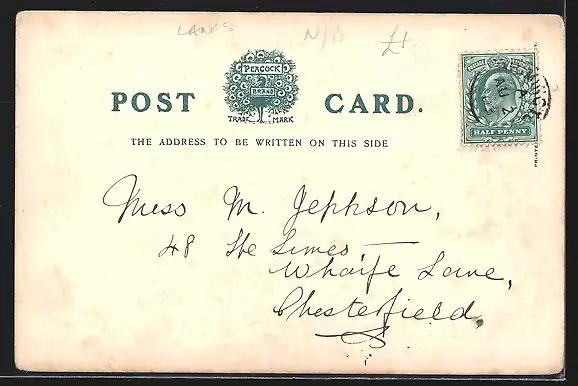 LANKS N/B £1
PEACOCK
BRAND
TRADE MARK
POST CARD.
THE ADDRESS TO BE WRITTEN ON THIS SIDE
HALF PENNY
Miss M. Jephson,
48 The Limes
Wharfe Lane,
Chesterfield,